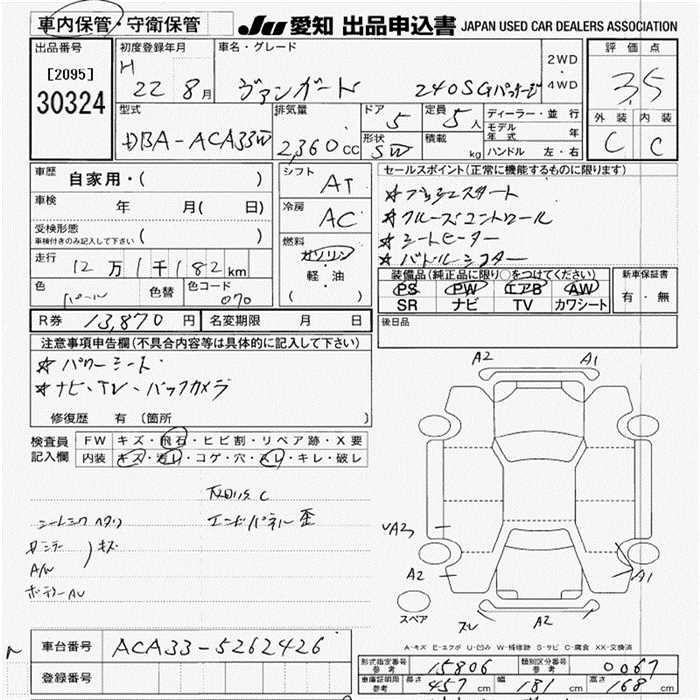 車内保管・守衛保管
JU 愛知 出品申込書 JAPAN USED CAR DEALERS ASSOCIATION
出品番号
[2095]
30324
初度登録年月
H 22 8月
車名・グレード
ヴァンガード 240S Gパッケージ
2WD
・
4WD
評価点
3.5
外装 内装
C C
型式
DBA-ACA33W
排気量
2,360 CC
ドア
5
形状
SW
定員
5人
積載
kg
ディーラー・並行
モデル年式 年
ハンドル 左・右
車歴 自家用・( )
車検 年 月( 日)
受検形態
車検付きのみ記入して下さい ( )
走行 12万1千182km
色 パール 色替 色コード 070
シフト AT
冷房 AC
燃料
ガソリン
・
軽・油
( )
セールスポイント(正常に機能するものに限ります)
☆プッシュスタート
☆クルーズコントロール
☆シートヒーター
☆パドルシフター
装備品(純正品に限り○をつけてください)
PS PW エアB AW
SR ナビ TV カワシート
新車保証書
有・無
R券 13,870円 名変期限 月 日
後日品
注意事項申告欄(不具合内容等は具体的に記入して下さい)
☆パワーシート
☆ナビ、TV、バックカメラ
修復歴 有〔箇所 〕
検査員記入欄
FW キズ・飛石・ヒビ割・リペア跡・X要
内装 キズ・汚レ・コゲ・穴・スレ・キレ・破レ
エンドパネル歪
キズ
A/W
A2 A1
A2
A2 A1
スレ A2
スペア
A-キズ E-エクボ U-凹み W-補修跡 S-サビ C-腐食 XX-交換済
車台番号 ACA33-5262426
登録番号
形式指定番号 参考 15806 類別区分番号 参考 0067
車庫証明用 参考 長さ 457cm 幅 181cm 高さ 168cm